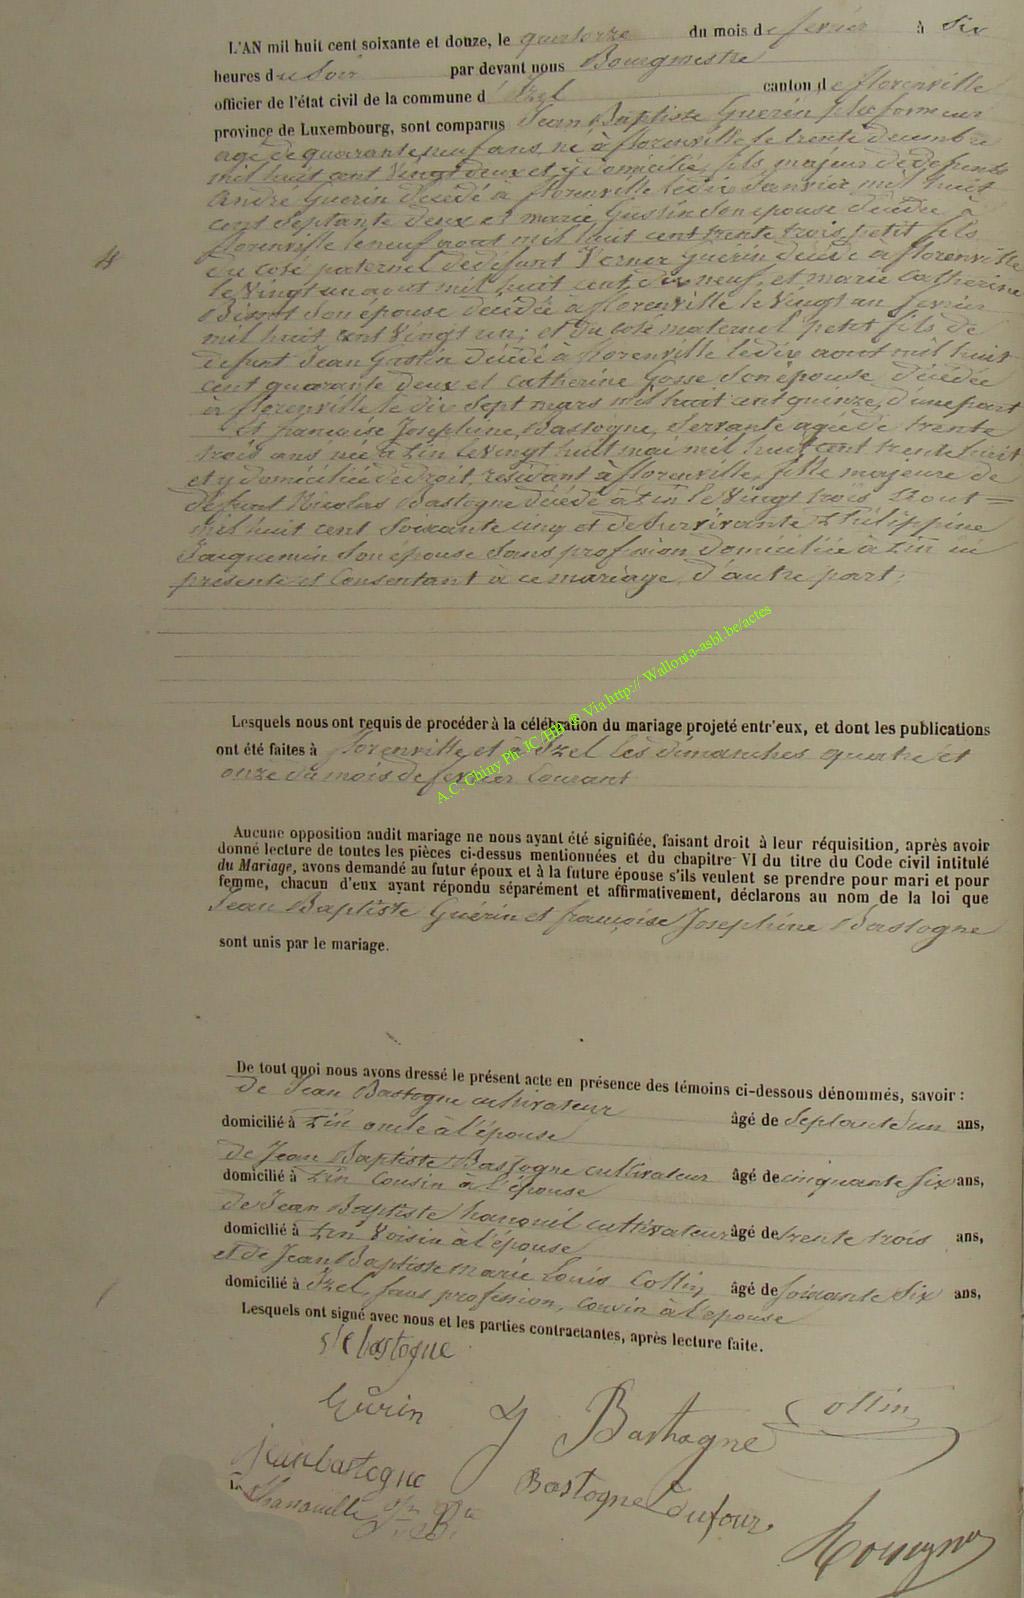 L'AN mil huit cent soixante et douze, le quatorze du mois de fevrier à six
heures du Soir par devant nous Bourgmestre
officier de l'état civil de la commune d'Izel canton de florenville
province de Luxembourg, sont comparus Jean Baptiste Guérin plafonneur
agé de quarante neuf ans, né à florenville le trente decembre
mil huit cent Vingt deux et y domicilié, fils majeur de defunts
André Guérin décédé à florenville le dix Janvier mil huit
cent Septante deux et marie Gustin Son épouse décédée à
florenville le neuf aout mil huit cent trente trois, petit fils
4
du coté paternel de défunt Guérin décédé à florenville
le Vingt un aout mil huit cent dix neuf, et marie Catherine
Son épouse décédée à florenville le Vingt un fevrier
mil huit cent Vingt un; et du coté maternel petit fils de
defunt Jean Gustin décédé à florenville le dix aout mil huit
cent quarante deux et Catherine Gosse Son épouse, décédée
à florenville le dix Sept mars mil huit cent quinze, d'une part
Et françoise Josephine Bastogne, Servante agée de trente
trois ans née à Pin le Vingt huit mai mil huit cent trente huit
et y domiciliée de droit, résidant à florenville, fille majeure de
défunt Nicolas Bastogne décédé à Pin le Vingt trois Aout =
Mil huit cent Soixante cinq et de Survivante Philippine
Jacquemin Son épouse Sans profession domiciliée à Pin ici
présente et Consentant à ce mariage, d'autre part;
Lesquels nous ont requis de procéder à la célébration du mariage projeté entr'eux, et dont les publications
ont été faites à florenville et à Izel les dimanches quatre et
onze du mois de fevrier Courant
A.C. Chiny Ph. JC /HB © Via http:// Wallonia-asbl.be/actes
Aucune opposition audit mariage ne nous ayant été signifiée, faisant droit à leur réquisition, après avoir
donné lecture de toutes les pièces ci-dessus mentionnées et du chapitre VI du titre du Code civil intitulé
du Mariage, avons demandé au futur époux et à la future épouse s'ils veulent se prendre pour mari et pour
femme, chacun d'eux ayant répondu séparément et affirmativement, déclarons au nom de la loi que
Jean Baptiste Guérin et françoise Josephine Bastogne
sont unis par le mariage.
De tout quoi nous avons dressé le présent acte en présence des témoins ci-dessous dénommés, savoir :
de Jean Bastogne cultivateur âgé de Septante un ans,
domicilié à Pin oncle à l'épouse
de Jean Baptiste Bastogne cultivateur âgé de cinquante Six ans,
domicilié à Pin Cousin à l'épouse
de Jean Baptiste hanouil cultivateur âgé de trente trois ans,
domicilié à Pin Voisin à l'épouse
et de Jean Baptiste marie Louis Collin âgé de Soixante Six ans,
domicilié à Izel, Sans profession, cousin à l'épouse
Lesquels ont signé avec nous et les parties contractantes, après lecture faite.
bastogne
Guérin J Bastogne Collin
jean bastogne
Bastogne Dufour